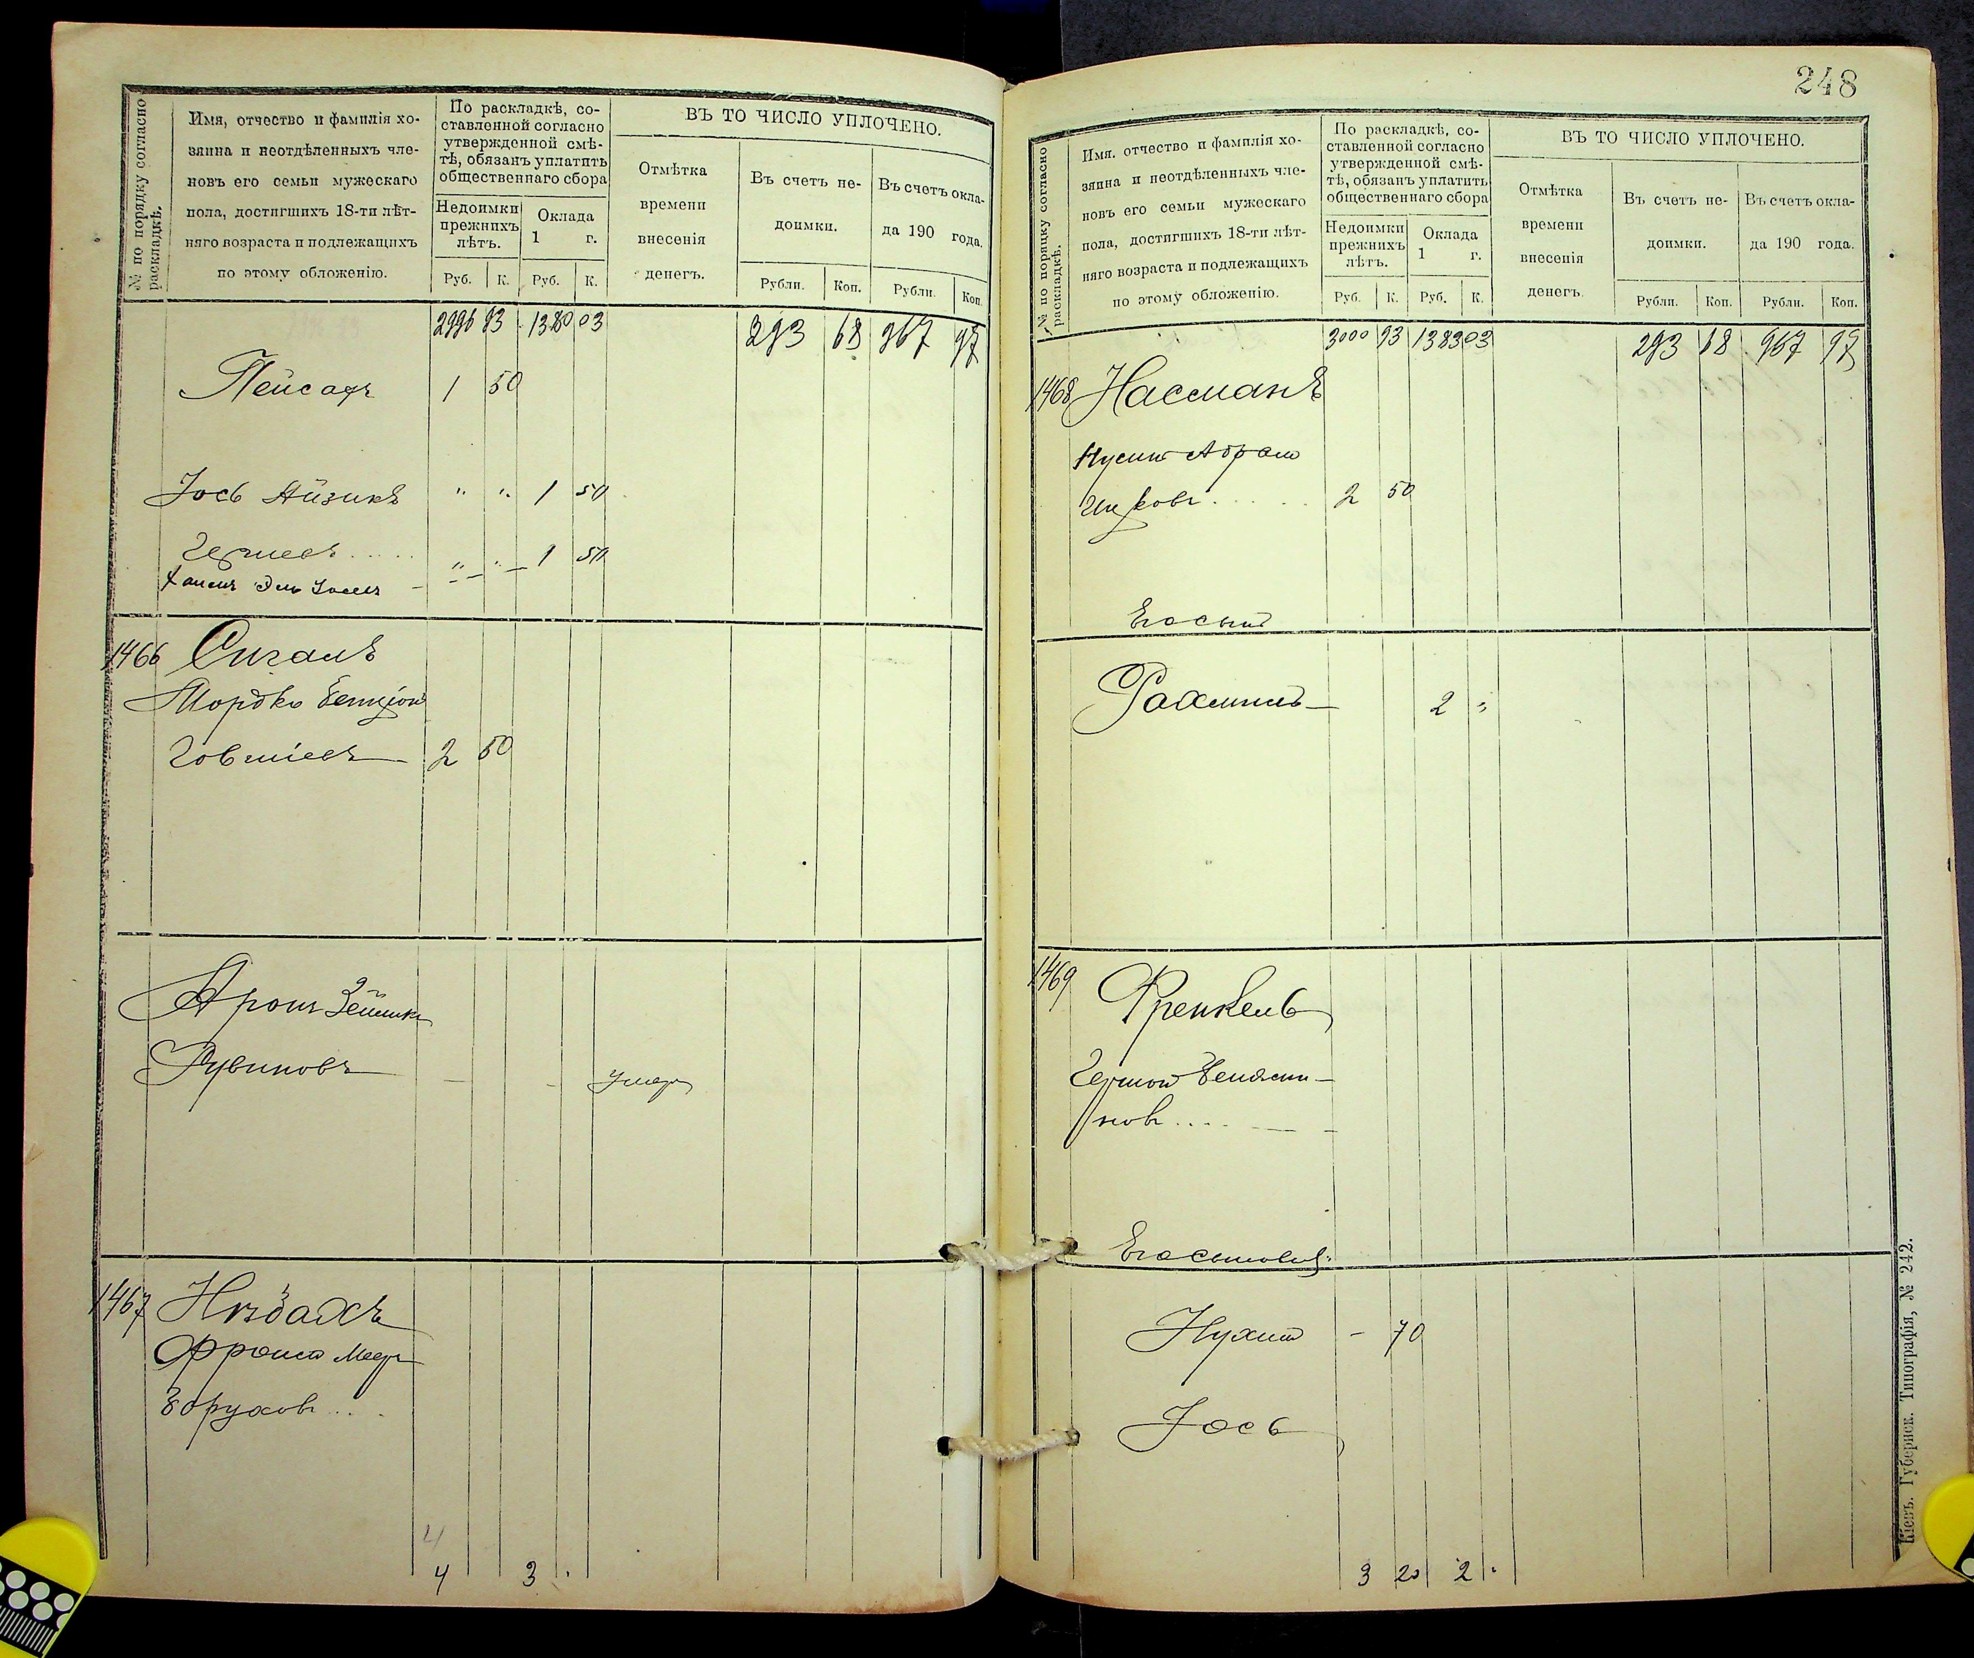 № по порядку согласно раскладкѣ.
Имя, отчество и фамилія хо-
зяина и неотдѣленныхъ чле-
новъ его семьи мужескаго
пола, достигшихъ 18-ти лѣт-
няго возраста и подлежащихъ
по этому обложенію.
По раскладкѣ, со-
ставленной согласно
утвержденной смѣ-
тѣ, обязанъ уплатить
общественнаго сбора
Недоимки
прежнихъ
лѣтъ.
Оклада
1 г.
Руб. К. Руб. К.
ВЪ ТО ЧИСЛО УПЛОЧЕНО.
Отмѣтка
времени
внесенія
денегъ.
Въ счетъ не-
доимки.
Въ счетъ окла-
да 190 года.
Рубли. Коп. Рубли. Коп.
2996 93 1380 03 293 68 967 97
Пейсахъ 1 50
Іось Айзикъ " " 1 50
Гершевъ " " 1 50
1466 Сигалъ
Мордко Бенціонъ
Говшіевъ 2 50
Аронъ Зейликъ
Рувиновъ — — умеръ
1467
Фроимъ Меер
Борухов
4
4 3
248
№ по порядку согласно раскладкѣ.
Имя. отчество и фамилія хо-
зяина и неотдѣленныхъ чле-
новъ его семьи мужескаго
пола, достигшихъ 18-ти лѣт-
няго возраста и подлежащихъ
по этому обложенію.
По раскладкѣ, со-
ставленной согласно
утвержденной смѣ-
тѣ, обязанъ уплатить
общественнаго сбора
Недоимки
прежнихъ
лѣтъ.
Оклада
1 г.
Руб. К. Руб. К.
ВЪ ТО ЧИСЛО УПЛОЧЕНО.
Отмѣтка
времени
внесенія
денегъ.
Въ счетъ не-
доимки.
Въ счетъ окла-
да 190 года.
Рубли. Коп. Рубли. Коп.
3000 93 1383 03 293 68 967 97
1468 Насманъ
Нусинъ Абрам
Ицковъ 2 50
Его сынъ
Рахмиль — 2 "
1469 Френкель
Гершон Бенями-
нов
Его сыновья:
Нухим - 70
Іось
3 20 2
Кіевъ. Губернск. Типографія, № 242.